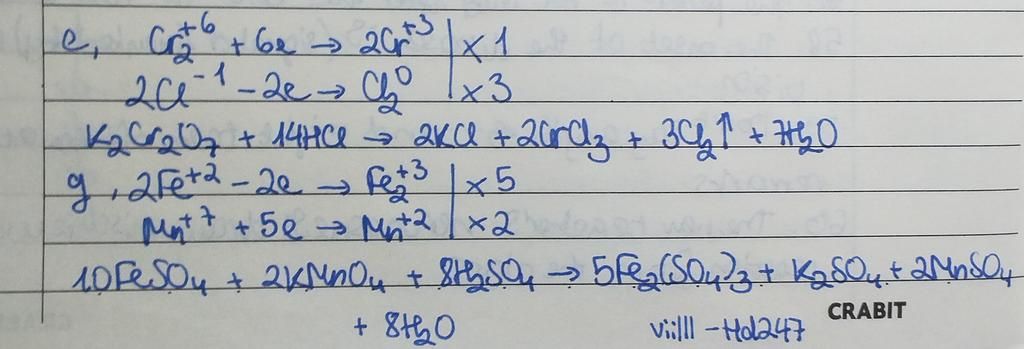 e, Cr₂⁺⁶ + 6e → 2Cr⁺³ | x 1
2Cl⁻¹ - 2e → Cl₂⁰ | x 3
K₂Cr₂O₇ + 14HCl → 2KCl + 2CrCl₃ + 3Cl₂↑ + 7H₂O
g, 2Fe⁺² - 2e → Fe₂⁺³ | x 5
Mn⁺⁷ + 5e → Mn⁺² | x 2
10FeSO₄ + 2KMnO₄ + 8H₂SO₄ → 5Fe₂(SO₄)₃ + K₂SO₄ + 2MnSO₄
+ 8H₂O
CRABIT